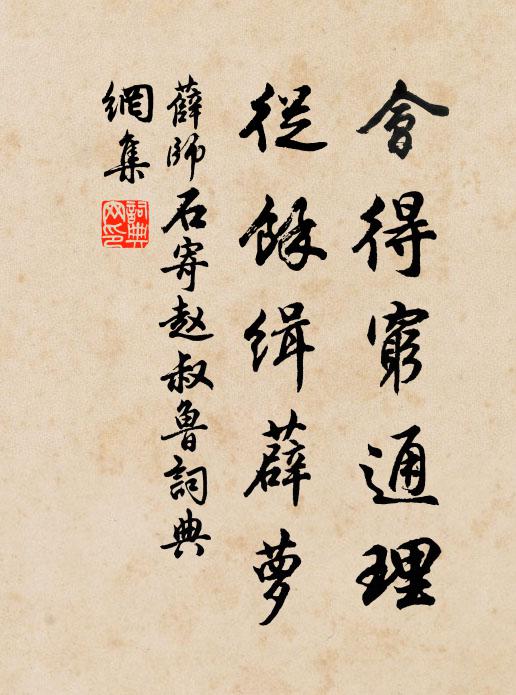 會得窮通理
從餘緝薜夢
薛師石寄赵叔魯詞典
網集
詞典
文印